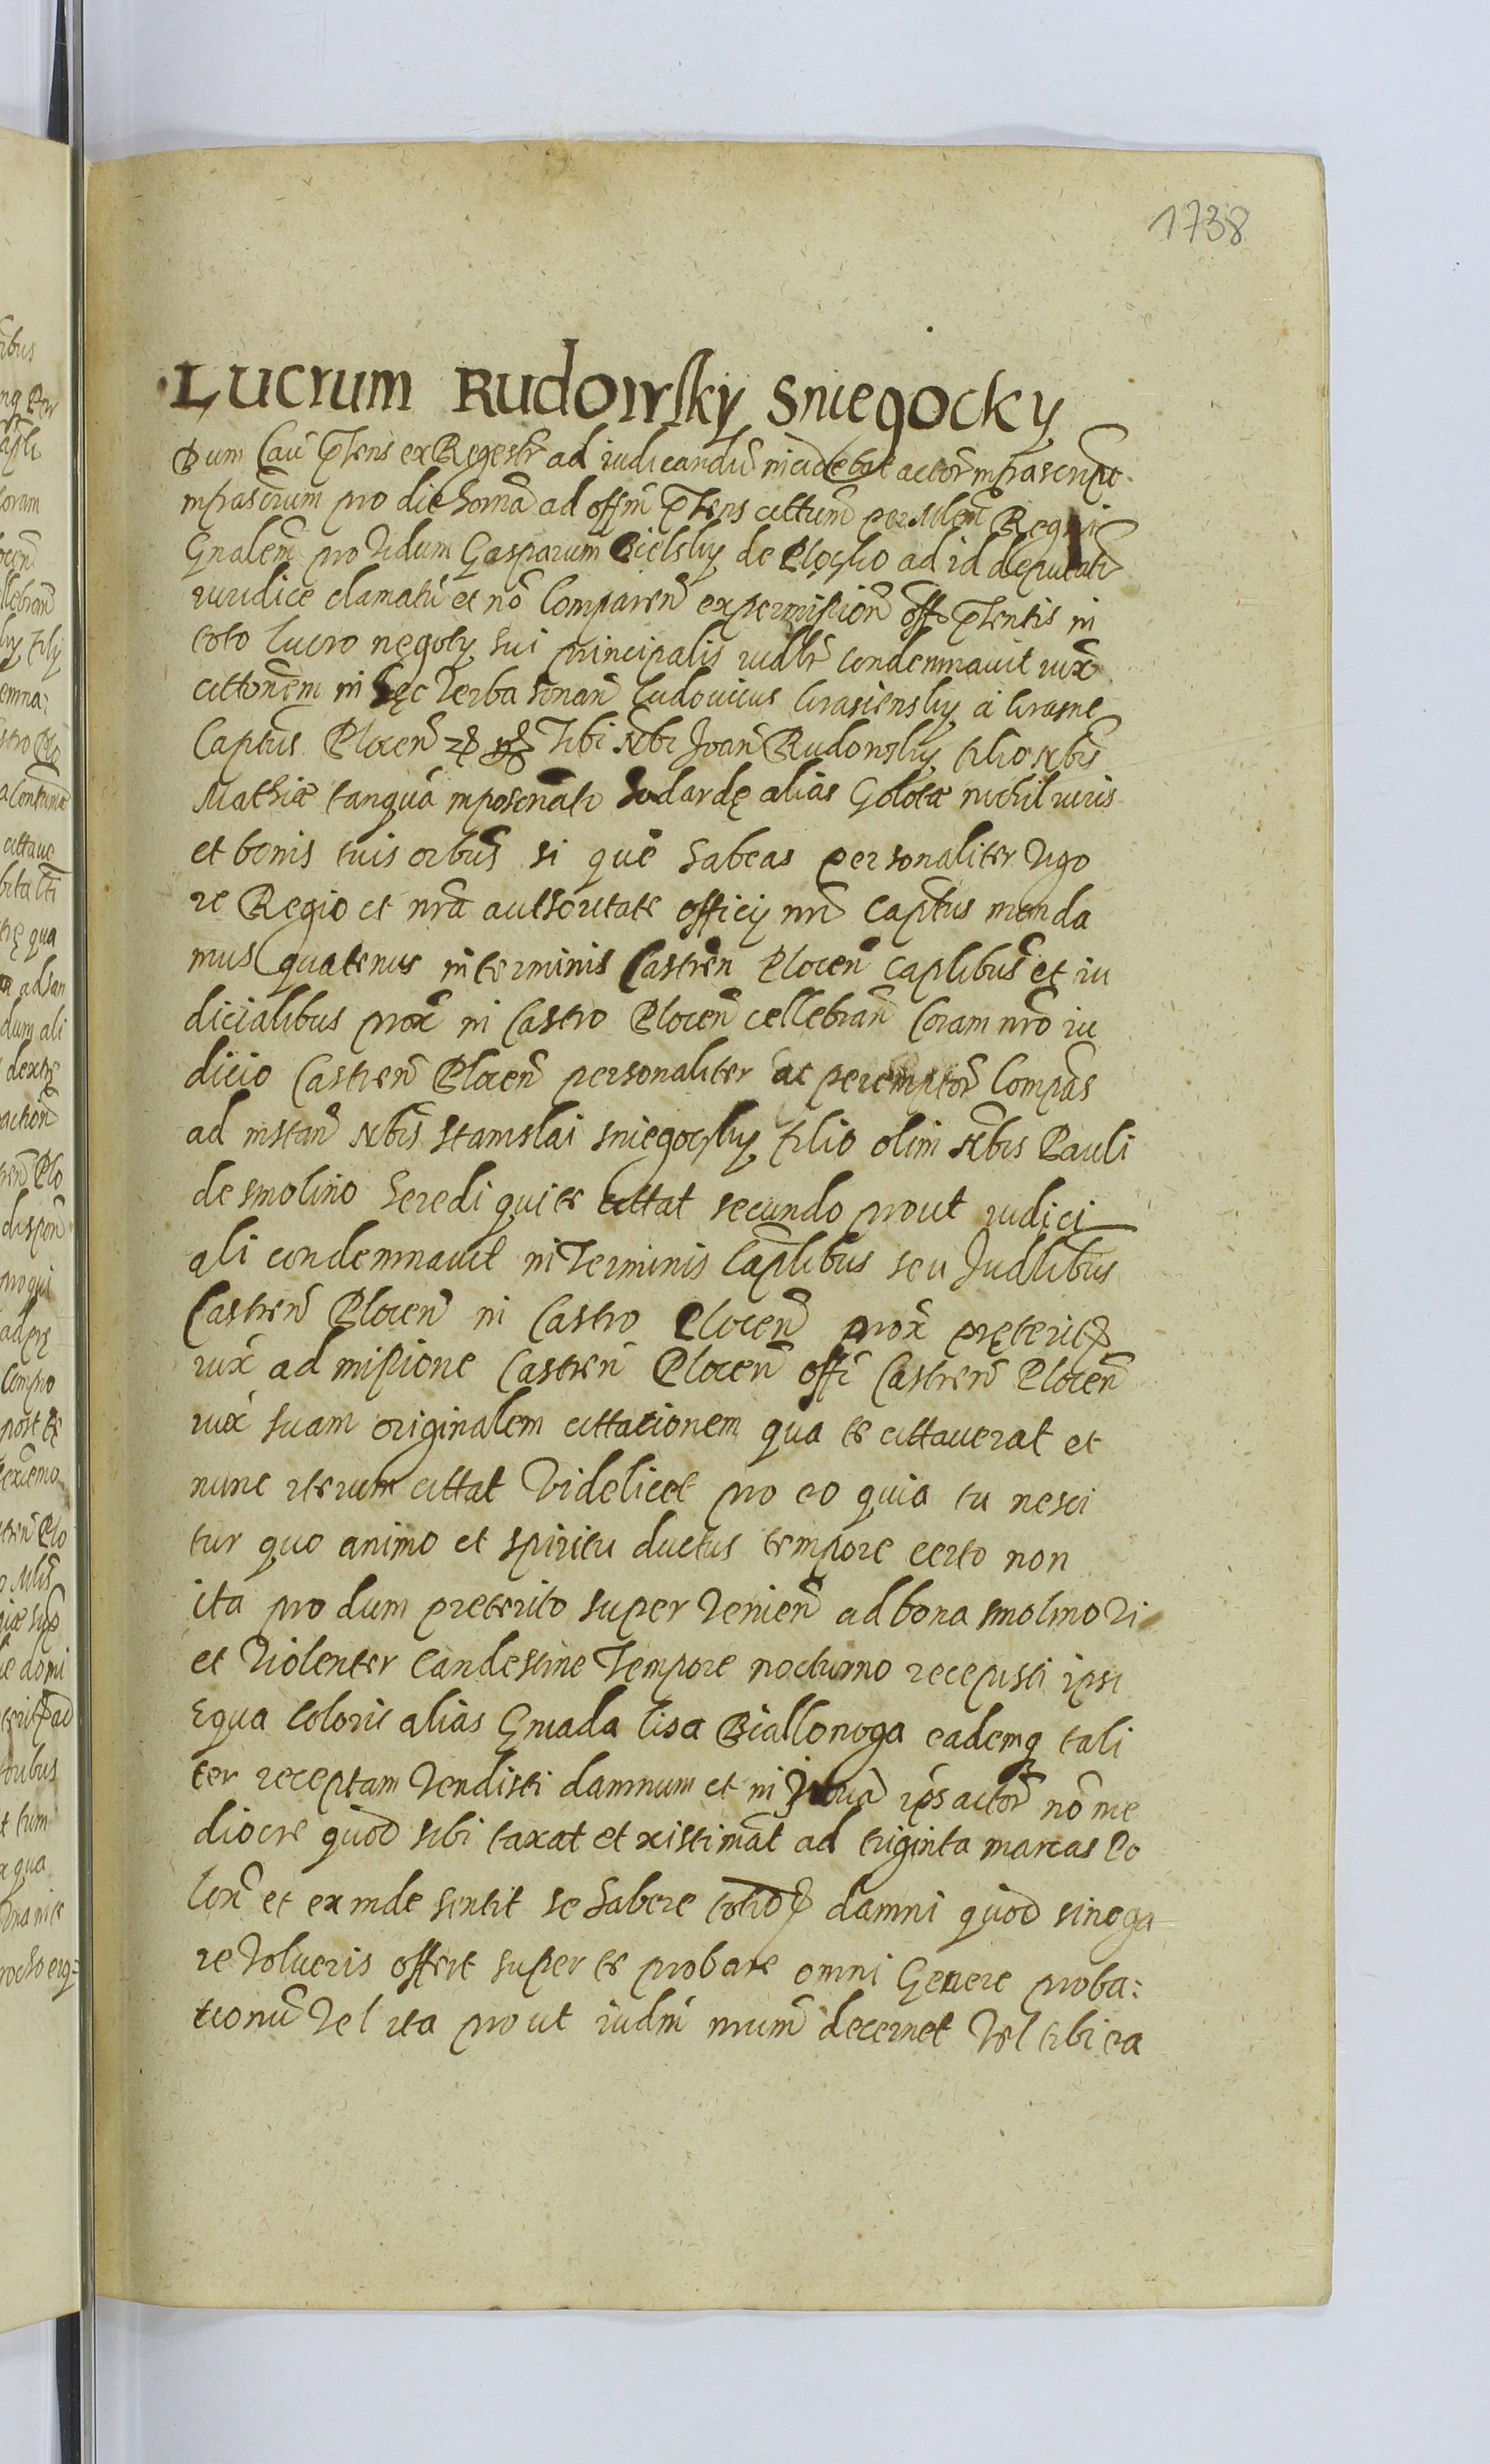 1738
Lucrum Rudowsky Sniegocky
Dum Cau͂ p̃ntens ex Regestr̃ ad iudicandũ incidebat actor̃ infrascrip̃t
infrascr̃um pro die hodierna ad offi͂m p̃ntens cittum̃ per Mlem̃ Regni
Gnalem̃ providum Gasparum Bielsky de Ploczko ad id deputatũ
iuridice clamatũ et nõ Comparen̄ ex permissiõn off p̃ntentis in
toto lucro negoty sui principalis iudlr̃ condemnavit iux̃
cittonem in hęc verba sonan̄ Ludovicus Krasiensky a Krasne
Captus Plocen̄ Tibi Nbi Joan̄ Rudowsky filio Nbis
Mathiæ tanquã impossnato Hodardę alias Golota nichil iuris
et bonis tuis oibus̃ si quę habeas personaliter vigo
re Regio et nr̃a authoritate officij nr̃i Captus manda
mus quatenus in terminis Castren̄ Plocen̄ caplibus̃ et iu
dicialibus prox̃ in Castro Plocen̄ cellebran̄ Coram nr̃o iu
dicio Castren̄ Plocen̄ personaliter ac peremptor̃ Compas
ad instan̄ Nbis Stanislai Sniegocky filio olim Nbis Pauli
de Smolino heredi qui te cittat secundo prout iudici
ali condemnavit in Terminis Caplibus seu Judlibus
Castren̄ Plocen̄ in Castro Plocen̄ prox̃ pręterit
iux̃ admissione Castren̄ Plocen̄ offi Castren̄ Plocen̄
iux̃ suam originalem cittationem qua te cittaverat et
nunc iterum cittat Videlicet pro eo quia tu nesci
tur quo animo et spiritu ductus tempore certo non
ita pro dum preterito super venien̄ ad bona Smolino Vi
et violenter Candestine Tempore nocturno recepisti ipsi
Equa coloris alias Gniada lisa Biallonoga eademq tali
ter receptam Vendisti damnum et in ips actor̃ nõ me
diocre quod sibi taxat et xistimat ad triginta marcas Po
lon̄ et exinde sentit se habere totid damni quod si nega
re volueris offert super te probare omni Genere proba:
tionũ vel ita prout iudm̃ nrum̃ decernet vel tibi ea